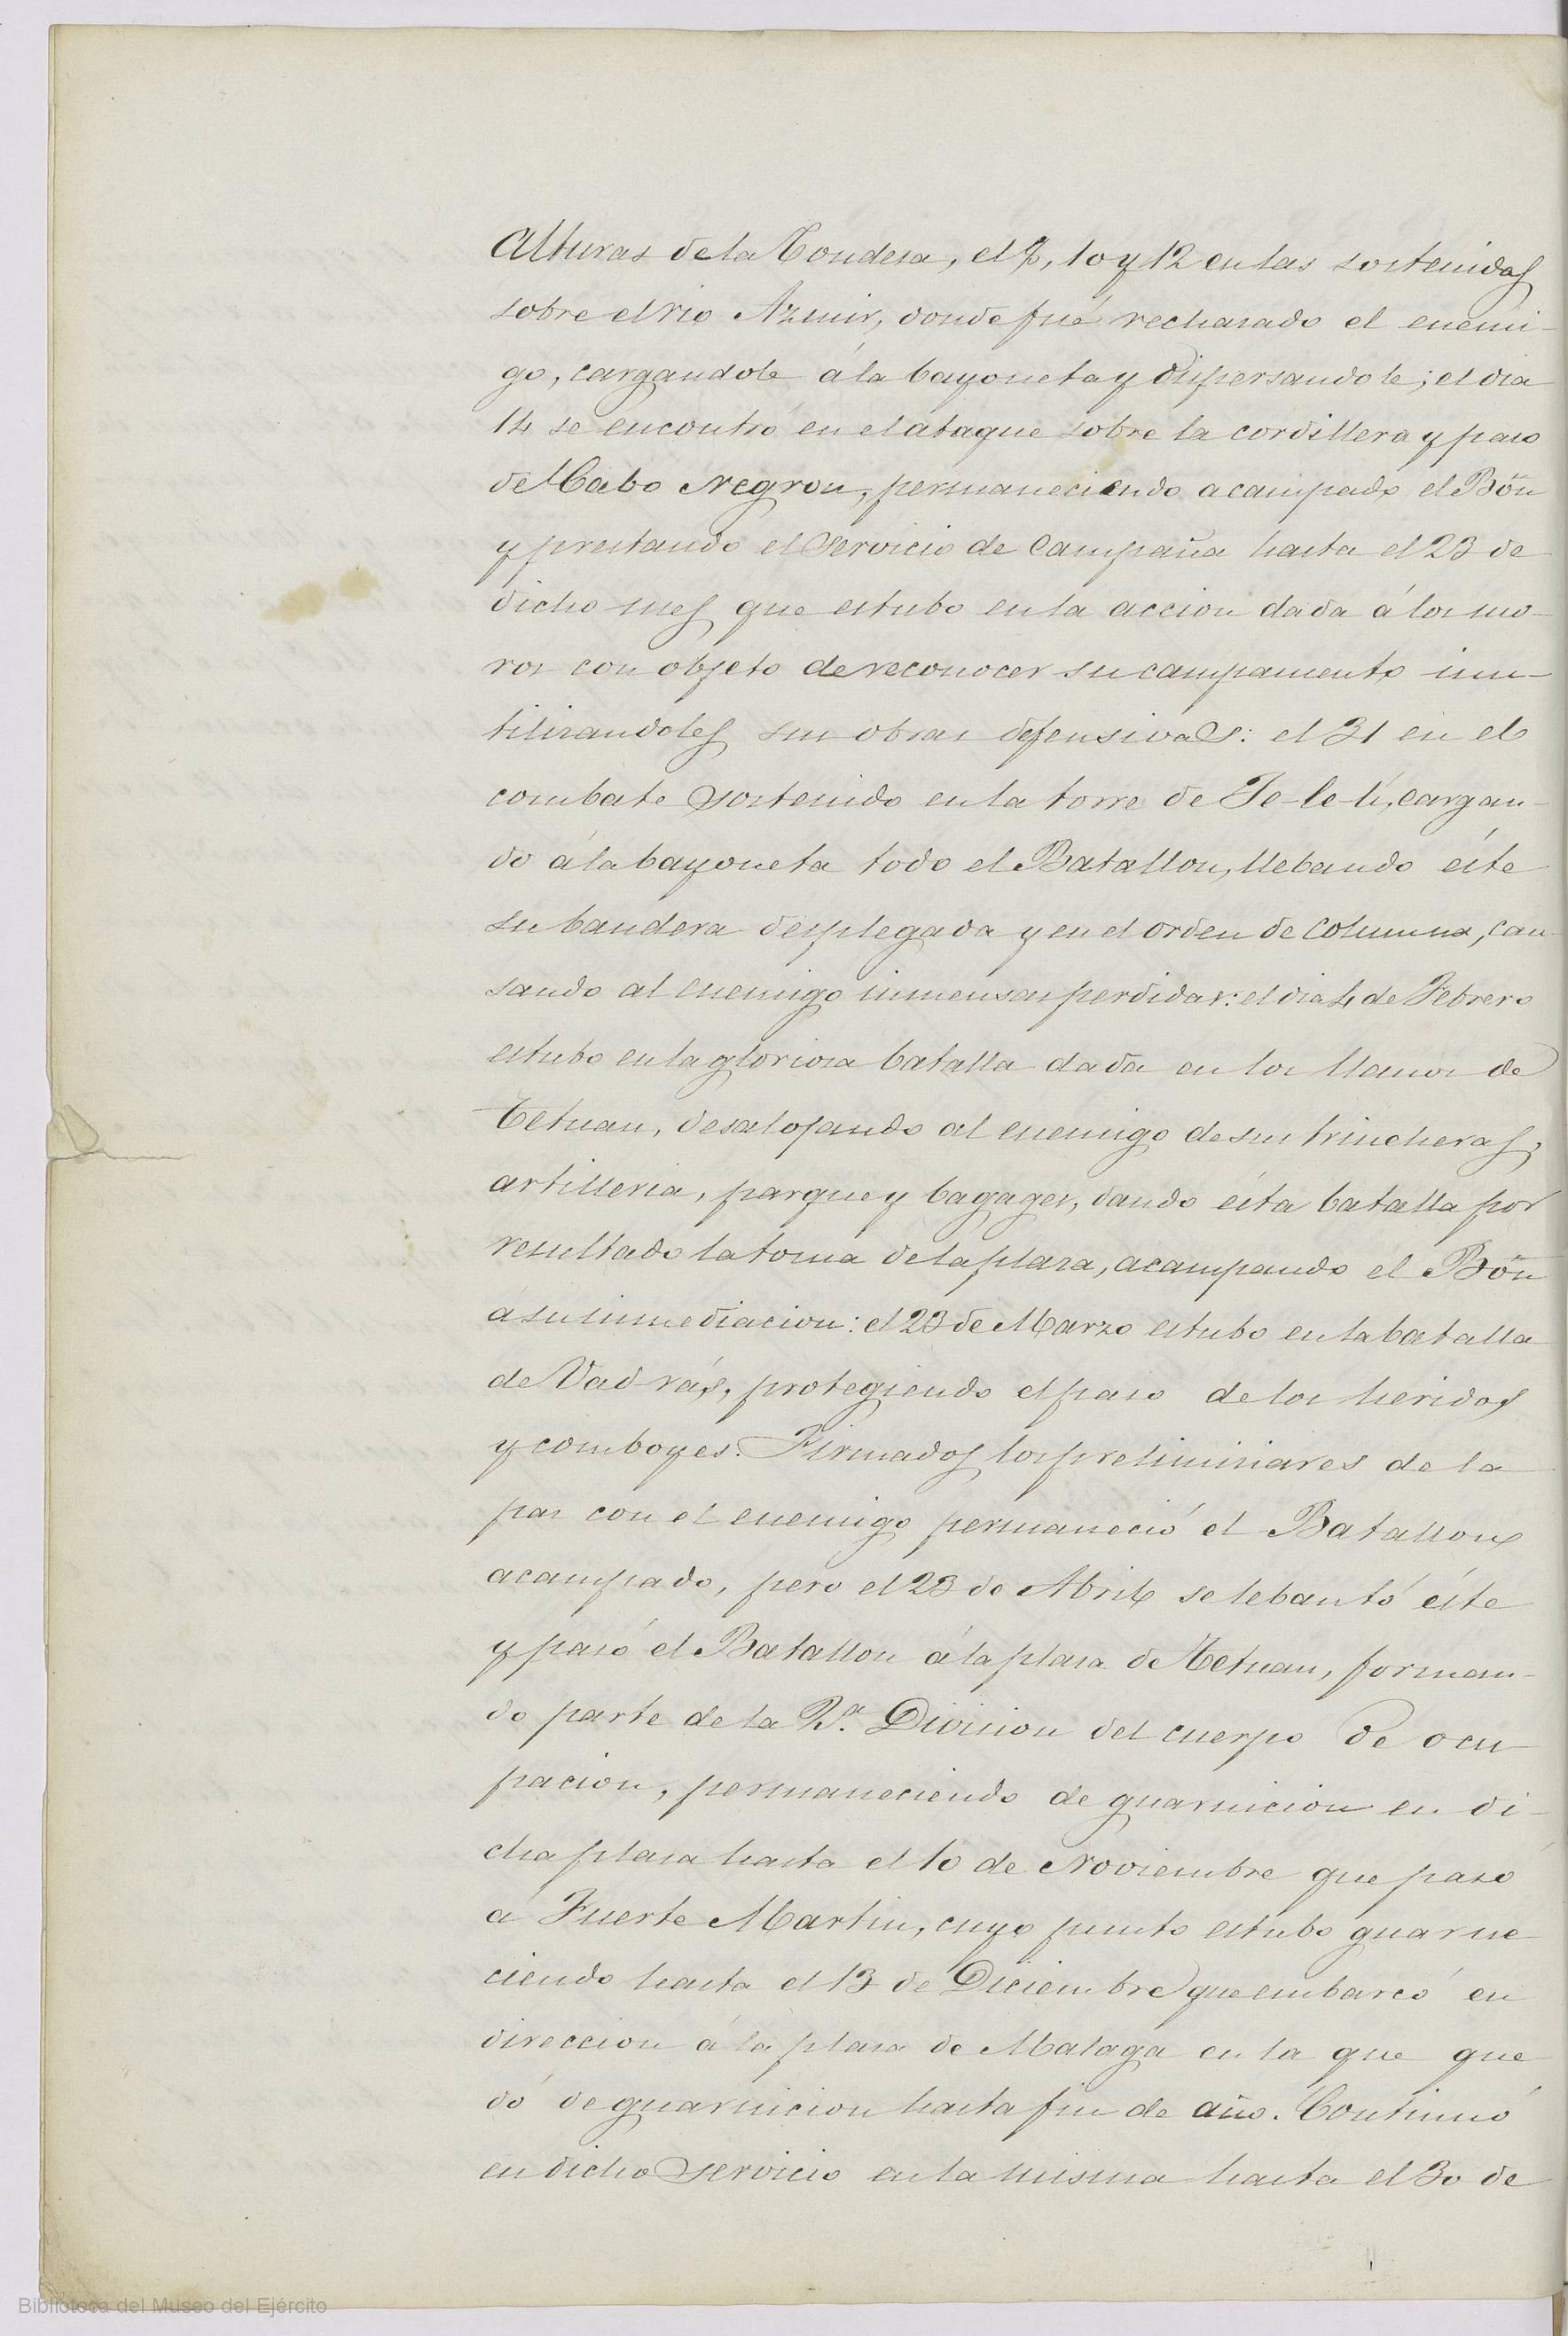 Alturas de la Condesa, el 7, 10 y 12 en las sostenidas
sobre el rio Azmir, donde fué rechasado el enemi-
go, cargandole á la bayoneta y dispersandole; el dia
14 se encontró en el ataque sobre la cordillera y paso
del Cabo Negron, permaneciendo acampado el Bōn
y prestando el Servicio de Campaña hasta el 23 de
dicho mes que estubo en la accion dada á los mo-
ros con objeto de reconocer su campamento inu-
tilizandoles sus obras defensivas: el 31 en el
combate sostenido en la torre de Je-le-lí, cargan-
do á la bayoneta todo el Batallon, llebando éste
su bandera desplegada y en el orden de columna, cau
sando al enemigo inmensas perdidas: el dia 4 de Febrero
estubo en la gloriosa batalla dada en los llanos de
Tetuan, desalojando al enemigo de sus trincheras,
artilleria, parque y bagages, dando ésta batalla por
resultado la toma de la plaza, acampando el Bōn
á su inmediacion: el 23 de Marzo estubo en la batalla
de Vad-rás, protegiendo el paso de los heridos
y comboyes. Firmados los preliminiares de la
paz con el enemigo permaneció el Batallon
acampado, pero el 23 de Abril se lebantó éste
y pasó el Batallon á la plaza de Tetuan, forman-
do parte de la 2.ª Division del cuerpo de ocu
pacion, permaneciendo de guarnicion en di-
cha plaza hasta el 10 de Noviembre que pasó
á Fuerte Martin, cuyo punto estubo guarne-
ciendo hasta el 13 de Diciembre que embarcó en
direccion á la plaza de Malaga en la que que
dó de guarnicion hasta fin de año. Continuó
en dicho servicio en la misma hasta el 30 de
Biblioteca del Museo del Ejército